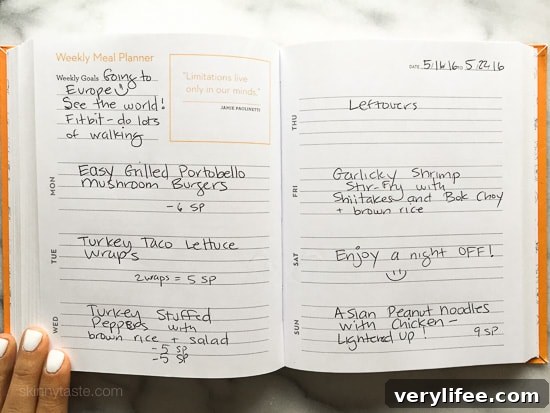 Weekly Meal Planner
Weekly Goals Going to
Europe
See the world!
Fitbit - do lots
of walking
"Limitations live
only in our minds."
JAMIE PAOLINETTI
MON
Easy Grilled Portobello
mushroom Burgers
- 6 SP
TUE
Turkey Taco Lettuce
wraps
2 wraps = 5 SP
WED
Turkey Stuffed
Peppers with
brown rice + salad
- 5 SP
- 5 SP
DATE 5/16/16 TO 5/22/16
THU
Leftovers
FRI
Garlicky Shrimp
Stir-Fry with
Shiitakes and Bok Choy
+ brown rice
SAT
Enjoy a night OFF!
SUN
Asian Peanut noodles
with Chicken -
Lightened up!
9 SP
skinnytaste.com
verylifee.com